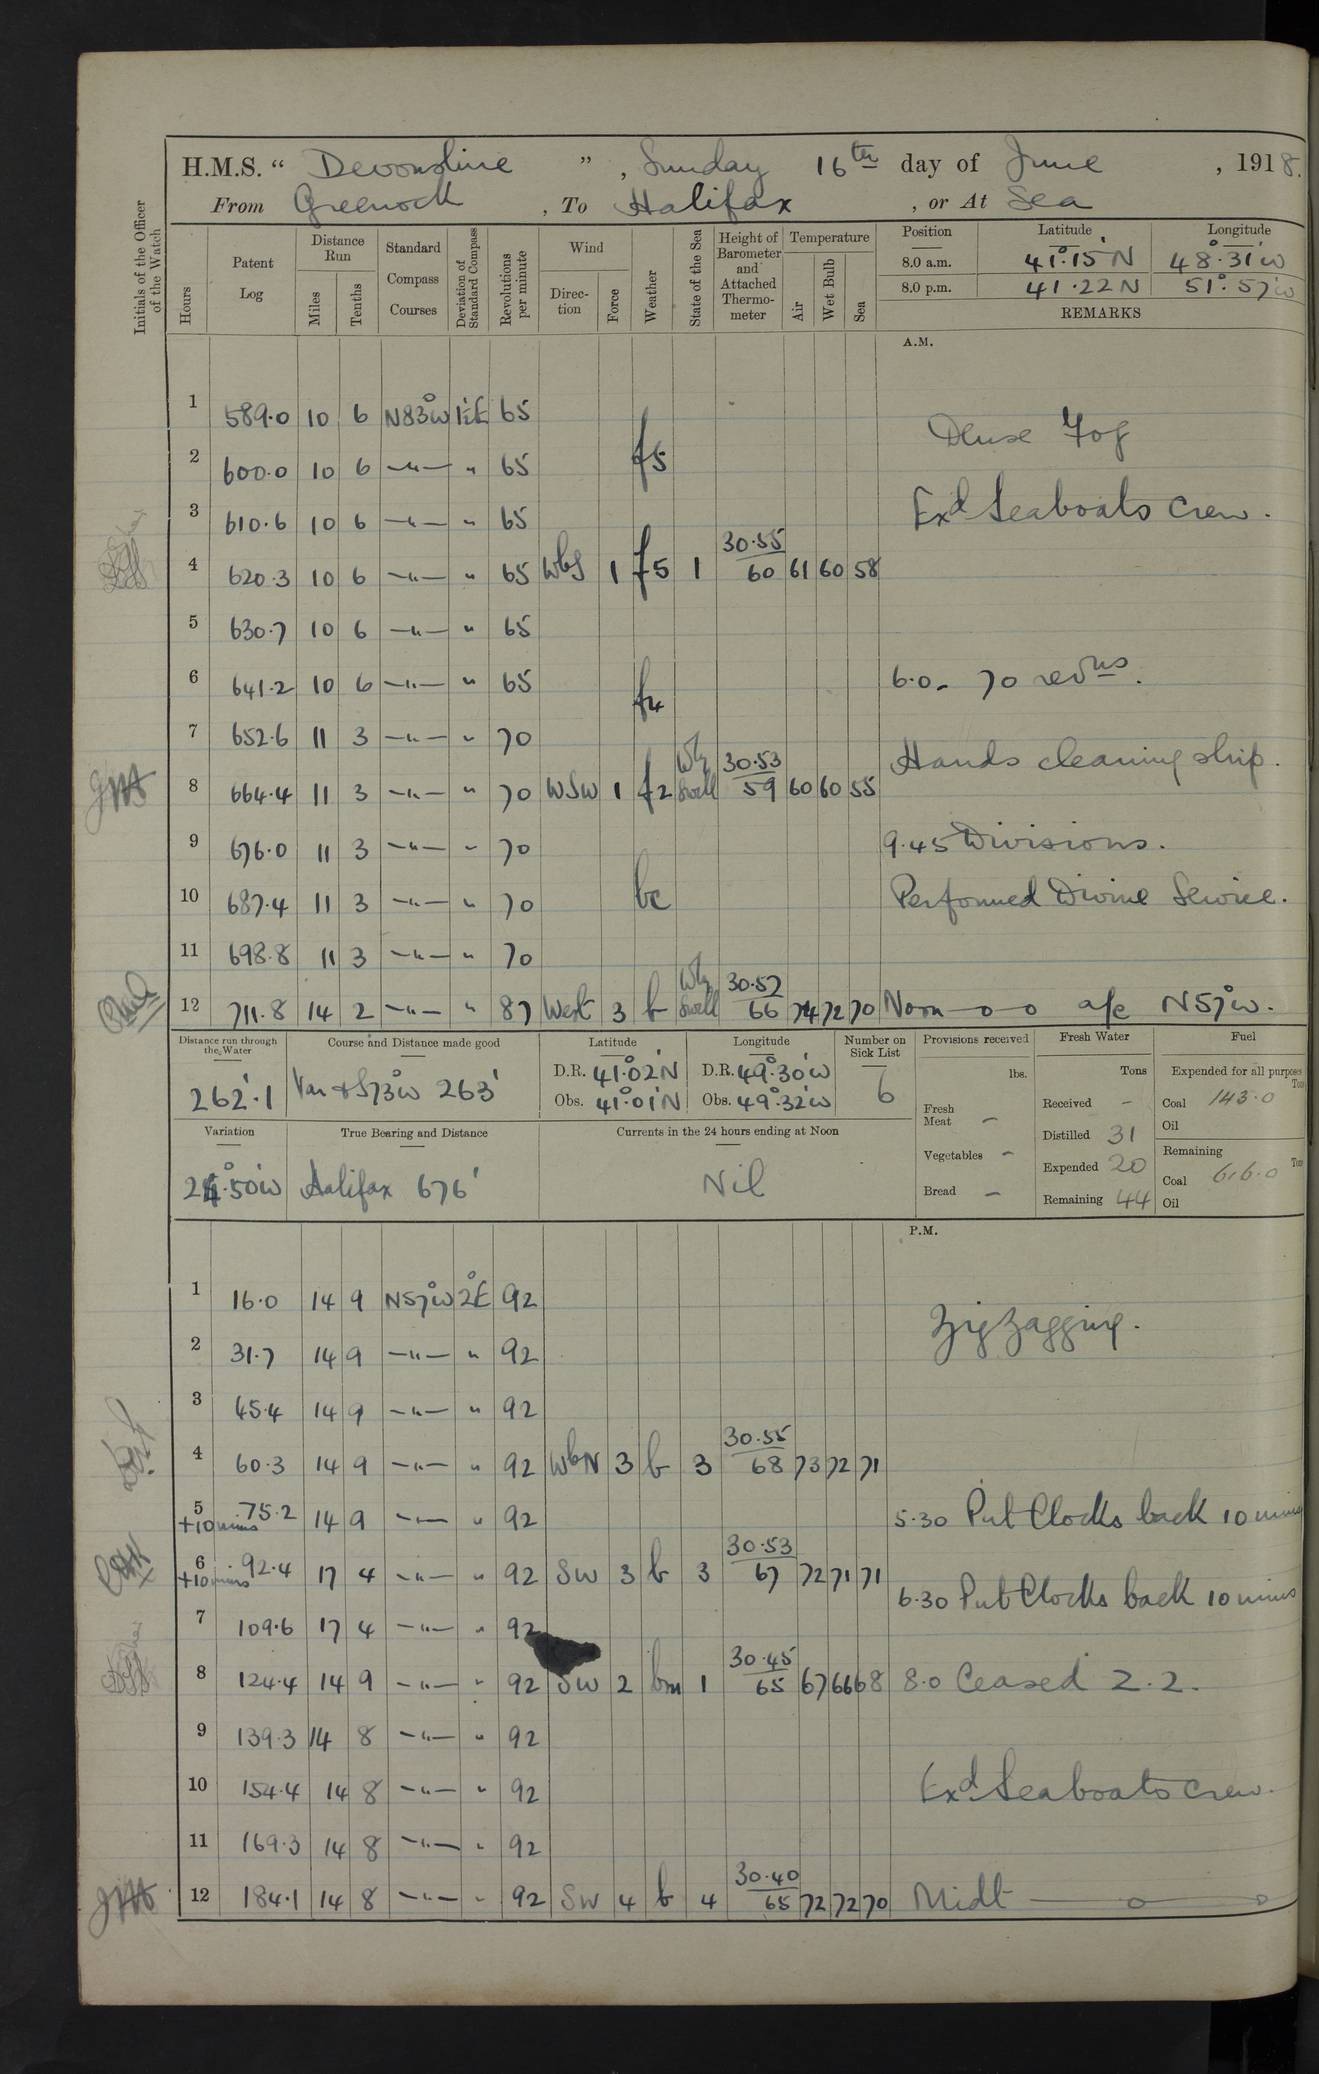 H.M.S. “ Devonshire ”, Sunday 16th day of June , 1918.
From Greenock , To Halifax , or At Sea
Initials of the Officer of the Watch
Hours
Patent Log
Distance Run
Miles
Tenths
Standard Compass Courses
Deviation of Standard Compass
Revolutions per minute
Wind
Direction
Force
Weather
State of the Sea
Height of Barometer and Attached Thermometer
Temperature
Air
Wet Bulb
Sea
Position Latitude Longitude
8.0 a.m. 41°.15'N 48°.31'W
8.0 p.m. 41.22N 51°.57'W
REMARKS
A.M.
1 589.0 10 6 N83°W 1½E 65
Dense Fog
2 600.0 10 6 —"— " 65 f5
3 610.6 10 6 —"— " 65
Exd Seaboats Crew.
4 620.3 10 6 —"— " 65 WbS 1 f5 1 30.55/60 61 60 58
5 630.7 10 6 —"— " 65
6 641.2 10 6 —"— " 65 f4 6.0. 70 revns.
7 652.6 11 3 —"— " 70
Hands cleaning ship.
8 664.4 11 3 —"— " 70 WSW 1 f2 Wly Swell 30.53/59 60 60 55
9 676.0 11 3 —"— " 70 9.45 Divisions.
10 687.4 11 3 —"— " 70 bc Performed Divine Service.
11 698.8 11 3 —"— " 70
12 711.8 14 2 —"— " 87 West 3 b Wly Swell 30.52/66 74 72 70 Noon —o—o a/c N57°W.
Distance run through the Water
262'.1
Course and Distance made good
Var + S73°W 263'
Latitude
D.R. 41°.02'N
Obs. 41°.01'N
Longitude
D.R. 49°.30'W
Obs. 49°.32'W
Number on Sick List
6
Provisions received
lbs.
Fresh Meat –
Vegetables –
Bread –
Fresh Water
Tons
Received –
Distilled 31
Expended 20
Remaining 44
Fuel
Expended for all purposes
Tons
Coal 143.0
Oil
Remaining
Tons
Coal 616.0
Oil
Variation
24°.50'W
True Bearing and Distance
Halifax 676'
Currents in the 24 hours ending at Noon
Nil
P.M.
1 16.0 14 9 N57°W 2°E 92
Zig Zagging.
2 31.7 14 9 —"— " 92
3 45.4 14 9 —"— " 92
4 60.3 14 9 —"— " 92 WbN 3 b 3 30.55/68 73 72 71
5 +10 mins 75.2 14 9 —"— " 92 5.30 Put Clocks back 10 mins
6 +10 mins 92.4 17 4 —"— " 92 SW 3 b 3 30.53/67 72 71 71
6.30 Put Clocks back 10 mins
7 109.6 17 4 —"— " 92
8 124.4 14 9 —"— " 92 SW 2 bm 1 30.45/65 67 66 68 8.0 Ceased Z.Z.
9 139.3 14 8 —"— " 92
10 154.4 14 8 —"— " 92 Exd Seaboats crew.
11 169.3 14 8 —"— " 92
12 184.1 14 8 —"— " 92 SW 4 b 4 30.40/65 72 72 70 Midt —o—o